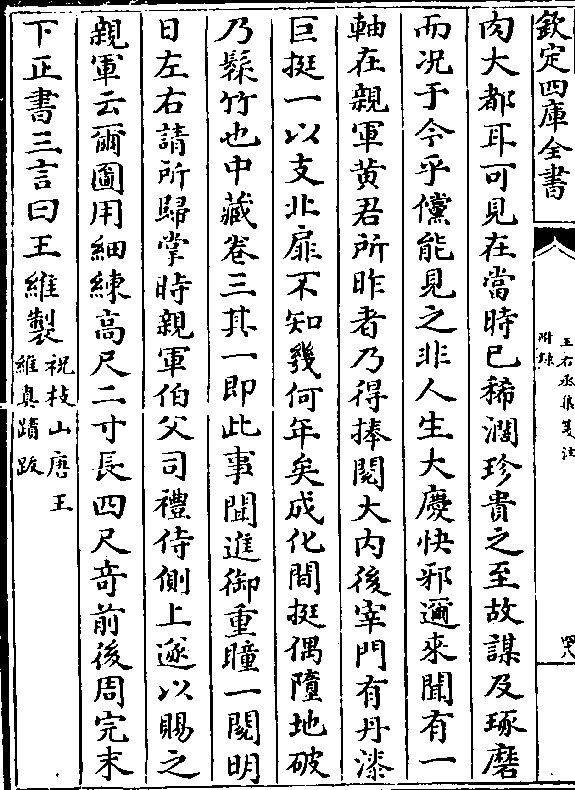 欽定四庫全書
王右丞集箋注
附錄
四八
肉大都耳可見在當時已稀濶珍貴之至故謀及琢磨
而况于今乎儻能見之非人生大慶快邪邇來聞有一
軸在親軍黄君所昨者乃得捧閱大内後宰門有丹漆
巨挺一以支北扉不知幾何年矣成化間挺偶墮地破
乃髹竹也中藏卷三其一即此事聞進御重瞳一閱明
日左右請所歸掌時親軍伯父司禮侍側上遂以賜之
親軍云爾圖用細練高尺二寸長四尺竒前後周完末
下正書三言曰王維製祝枝山唐王
維真蹟跋